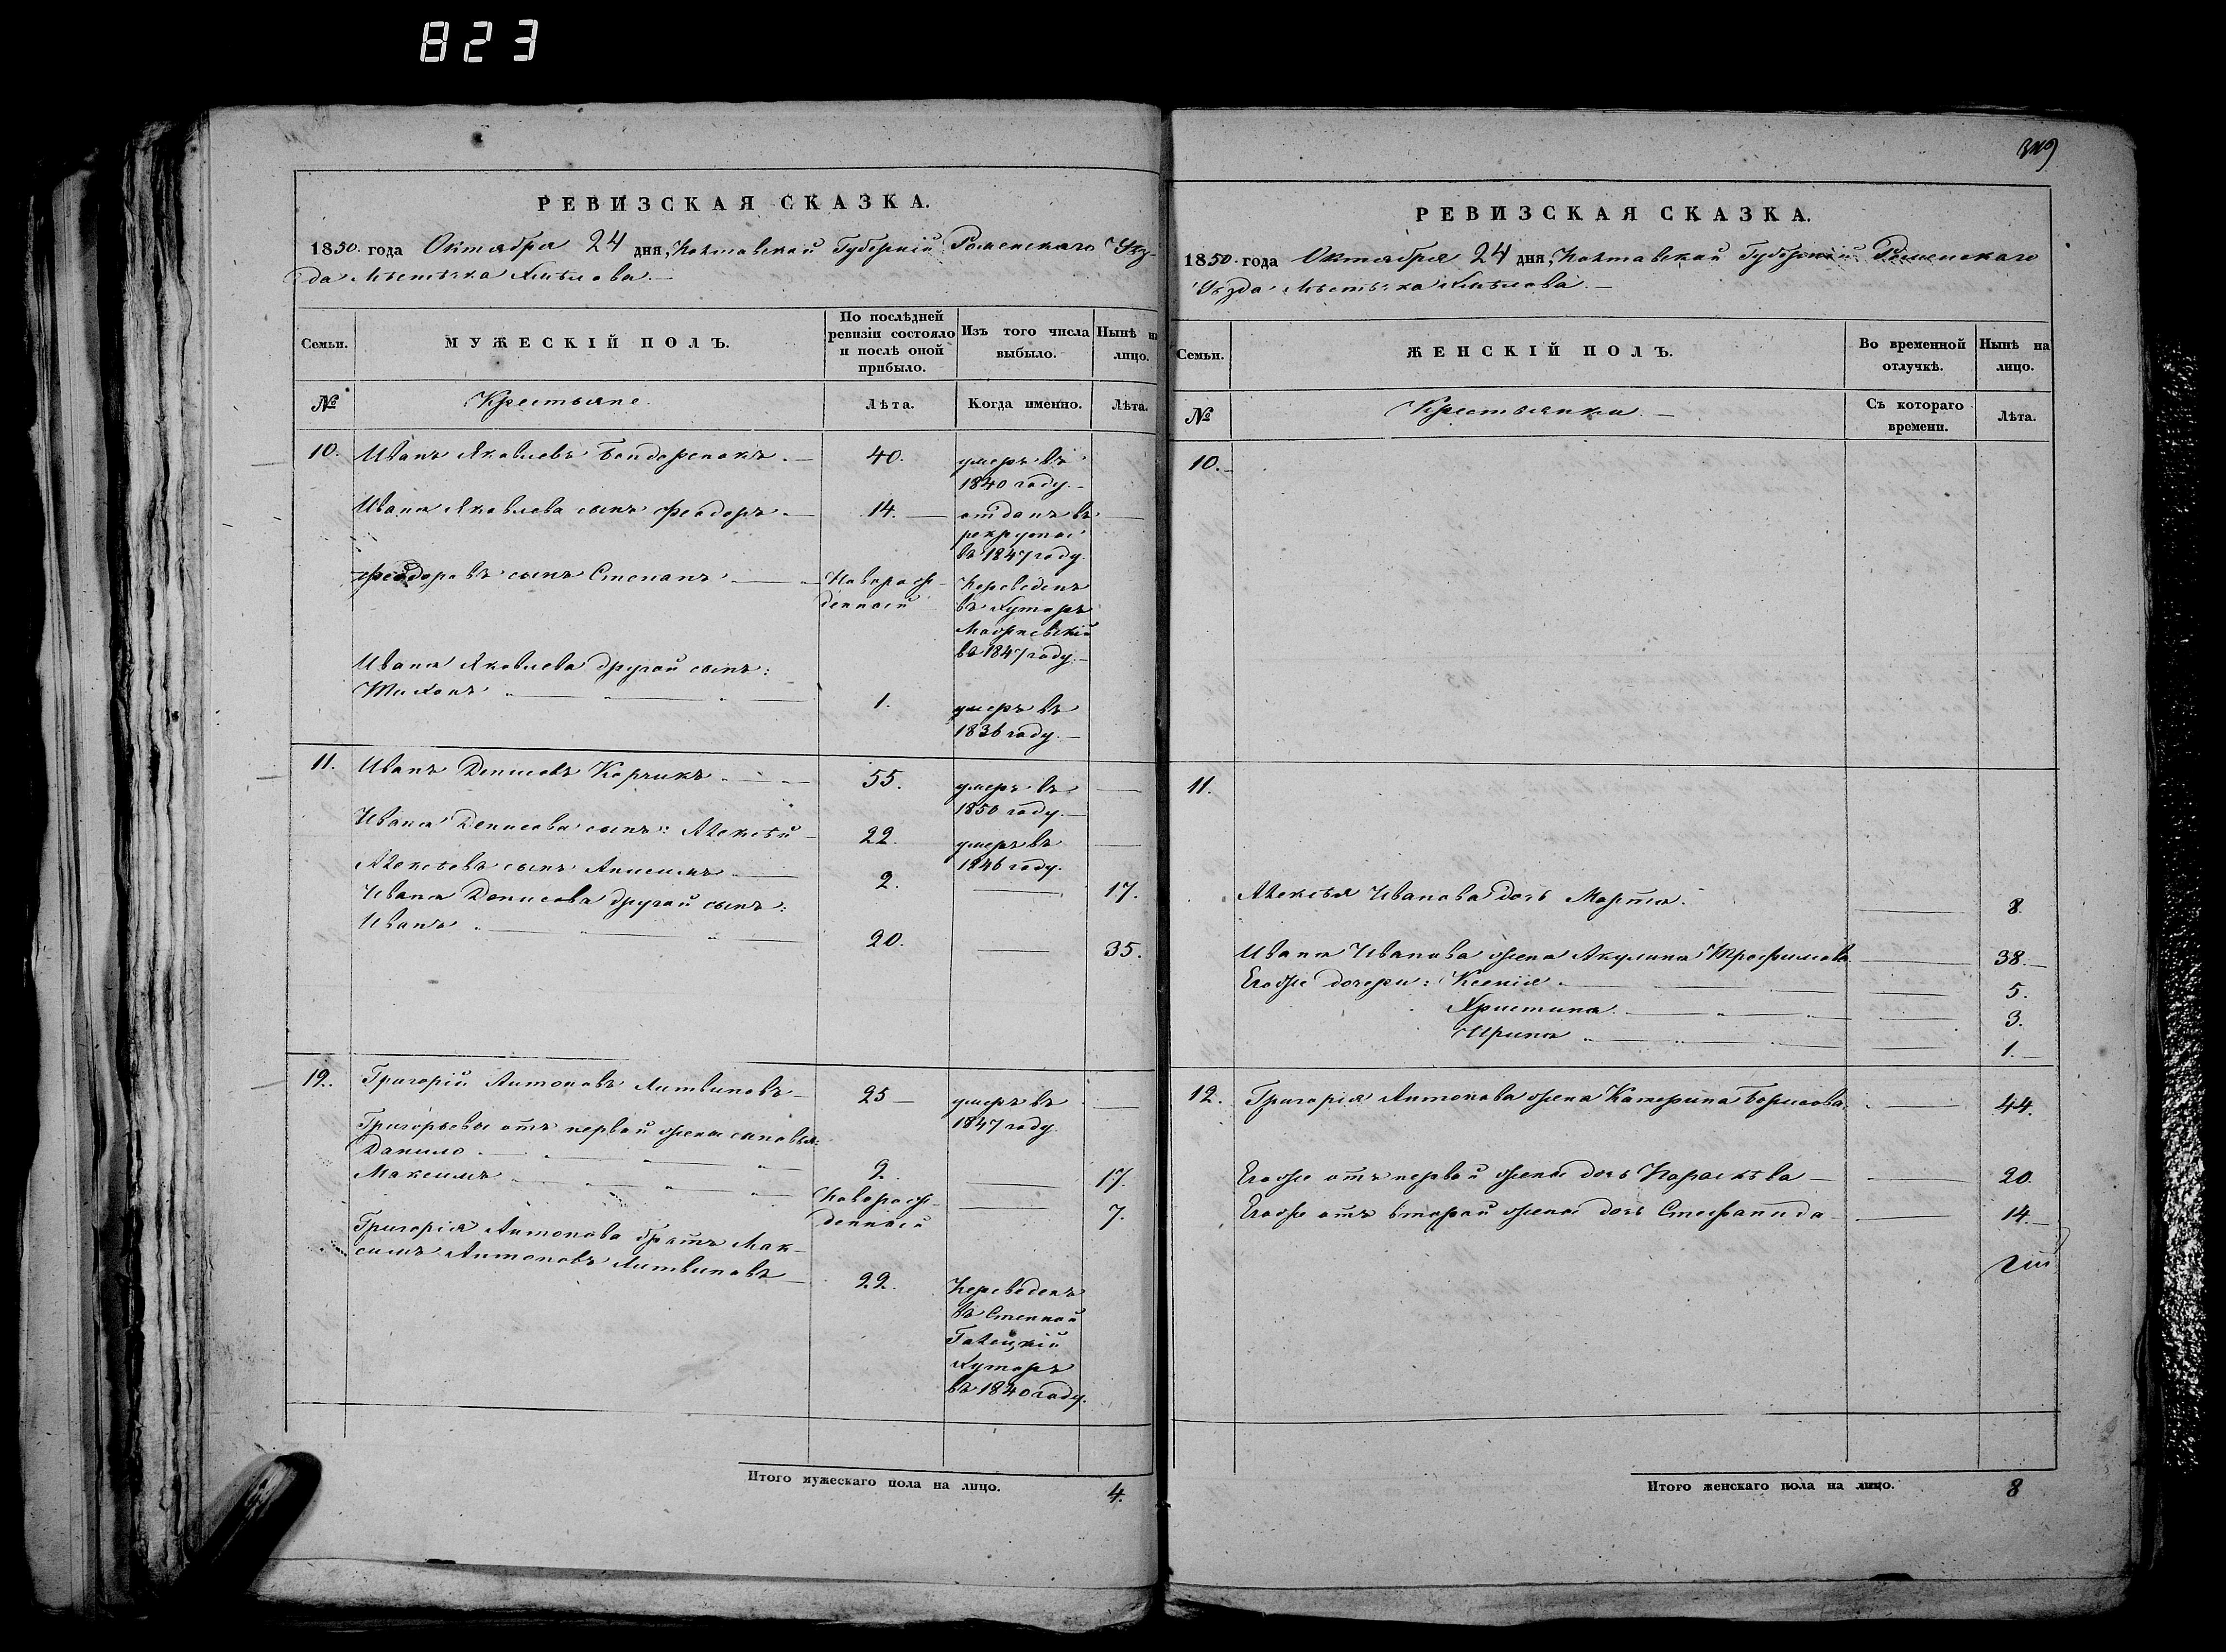 823
РЕВИЗСКАЯ СКАЗКА.
1850 года Октября 24 дня, Полтавской Губерніи Роменскаго Уѣз-
да Мѣстѣчка Хмѣлова.
Семьи.
МУЖЕСКІЙ ПОЛЪ.
По послѣдней ревизіи состояло и послѣ оной прибыло.
Изъ того числа выбыло.
Нынѣ на лицо.
№
Крестьяне.
Лѣта.
Когда именно.
Лѣта.
10. Иванъ Яковлевъ Бондаренокъ. — 40. умеръ въ
1840 году. —
Ивана Яковлева сынъ Феодоръ. — 14. — отданъ въ —
рекруты
въ 1847 году.
Феодоровъ сынъ Степанъ — Новорож- Переведенъ
денный въ Хуторъ
въ 1847 году. —
Ивана Яковлева другой сынъ:
Тихонъ — 1. умеръ въ
1836 году. —
11. Иванъ Денисовъ Корчикъ — 55. умеръ въ —
1850 году. —
Ивана Денисова сынъ: Алексѣй — 22. умеръ въ —
1846 году.
Алексѣевъ сынъ Анисимъ — 2. — 17.
Ивана Денисова другой сынъ:
Иванъ — 20. — 35.
12. Григорій Антоновъ Литвиновъ — 25 — умеръ въ —
1847 году.
Григорьевы отъ первой жены сыновья:
Данило — 2. — 17.
Максимъ — Новорож-
денный — 7.
Григорія Антонова братъ Мак-
симъ Антоновъ Литвиновъ — 22. Переведенъ
въ Степной
Хуторъ
въ 1840 году.
Итого мужескаго пола на лицо. 4.
РЕВИЗСКАЯ СКАЗКА.
1850 года Октября 24 дня, Полтавской Губерніи Роменскаго
Уѣзда Мѣстѣчка Хмѣлова. —
Семьи.
ЖЕНСКІЙ ПОЛЪ.
Во временной отлучкѣ.
Нынѣ на лицо.
№
Крестьянки. —
Съ котораго времени.
Лѣта.
10. —
11.
Алексѣя Иванова дочь Марфа. — 8.
Ивана Иванова жена Акулина Трофимова — 38. —
Егоже дочери: Ксенія — 5.
Христина — 3.
Ирина — 1. —
12. Григорія Антонова жена Катерина Борисова. — 44.
Егоже отъ первой жены дочь Параскѣва — 20.
Егоже отъ второй жены дочь Стефанида — 14. —
Итого женскаго пола на лицо. 8